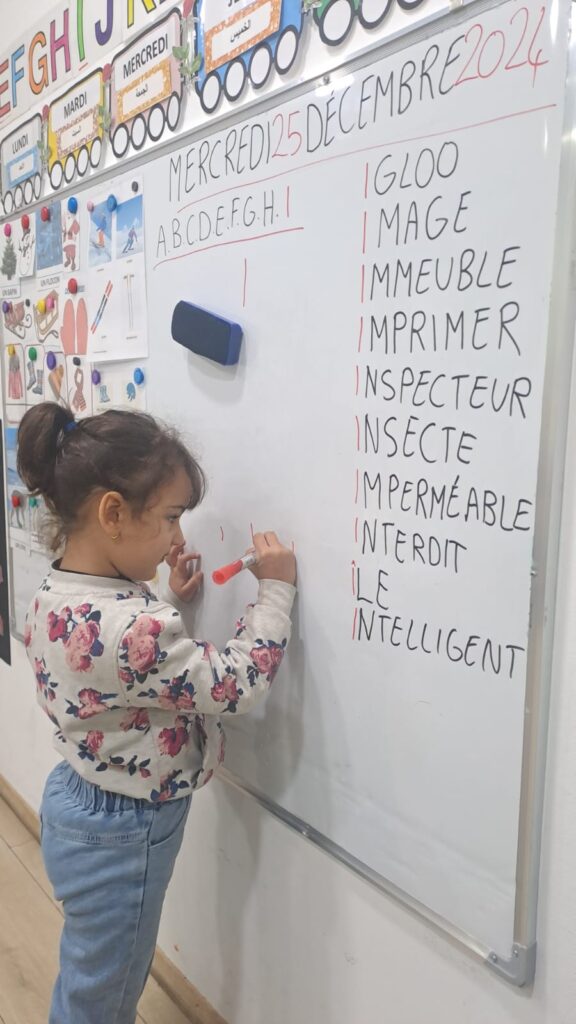 EFGHIJK
LUNDI
MARDI
MERCREDI
الخميس
MERCREDI 25 DÉCEMBRE 2024
A.B.C.D.E.F.G.H. I
I
IGLOO
IMAGE
IMMEUBLE
IMPRIMER
INSPECTEUR
INSECTE
IMPERMÉABLE
INTERDIT
ÎLE
INTELLIGENT
UN SAPIN
UN FLOCON